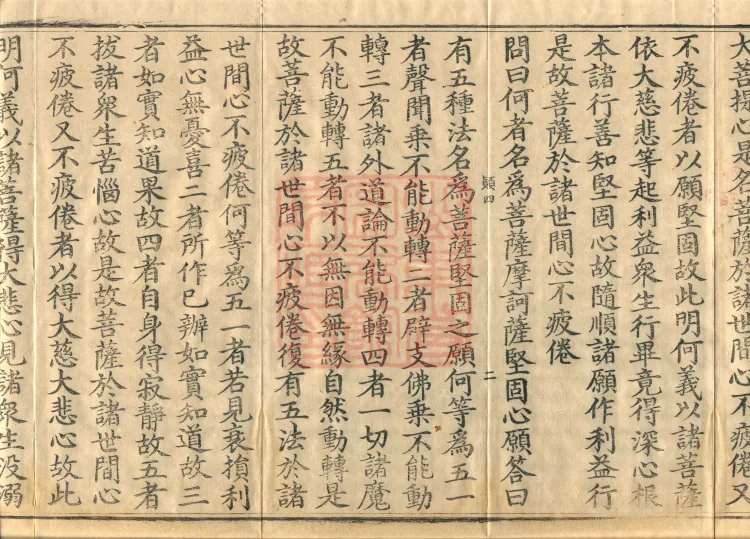 大菩提心是名菩薩於諸世間心不疲倦又
不疲倦者以願堅固故此明何義以諸菩薩
依大慈悲等起利益衆生行畢竟得深心根
本諸行善知堅固心故隨順諸願作利益行
是故菩薩於諸世間心不疲倦
問曰何者名爲菩薩摩訶薩堅固心願答曰
有五種法名爲菩薩堅固之願何等爲五一
者聲聞乗不能動轉二者辟支佛乗不能動
轉三者諸外道論不能動轉四者一切諸魔
不能動轉五者不以無因無緣自然動轉是
故菩薩於諸世間心不疲倦復有五法於諸
世間心不疲倦何等爲五一者若見衰損利
益心無憂喜二者所作已辦如實知道故三
者如實知道果故四者自身得寂靜故五者
拔諸衆生苦惱心故是故菩薩於諸世間心
不疲倦又不疲倦者以得大慈大悲心故此
明何義以諸菩薩得大悲心見諸衆生没溺